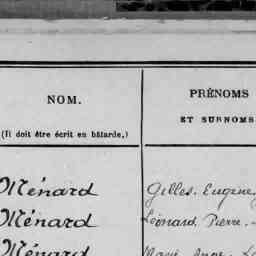 NOM.
(Il doit être écrit en bâtarde.)
PRÉNOMS
ET SURNOMS
Ménard Gilles. Eugène,
Ménard Léonard Pierre.
Ménard